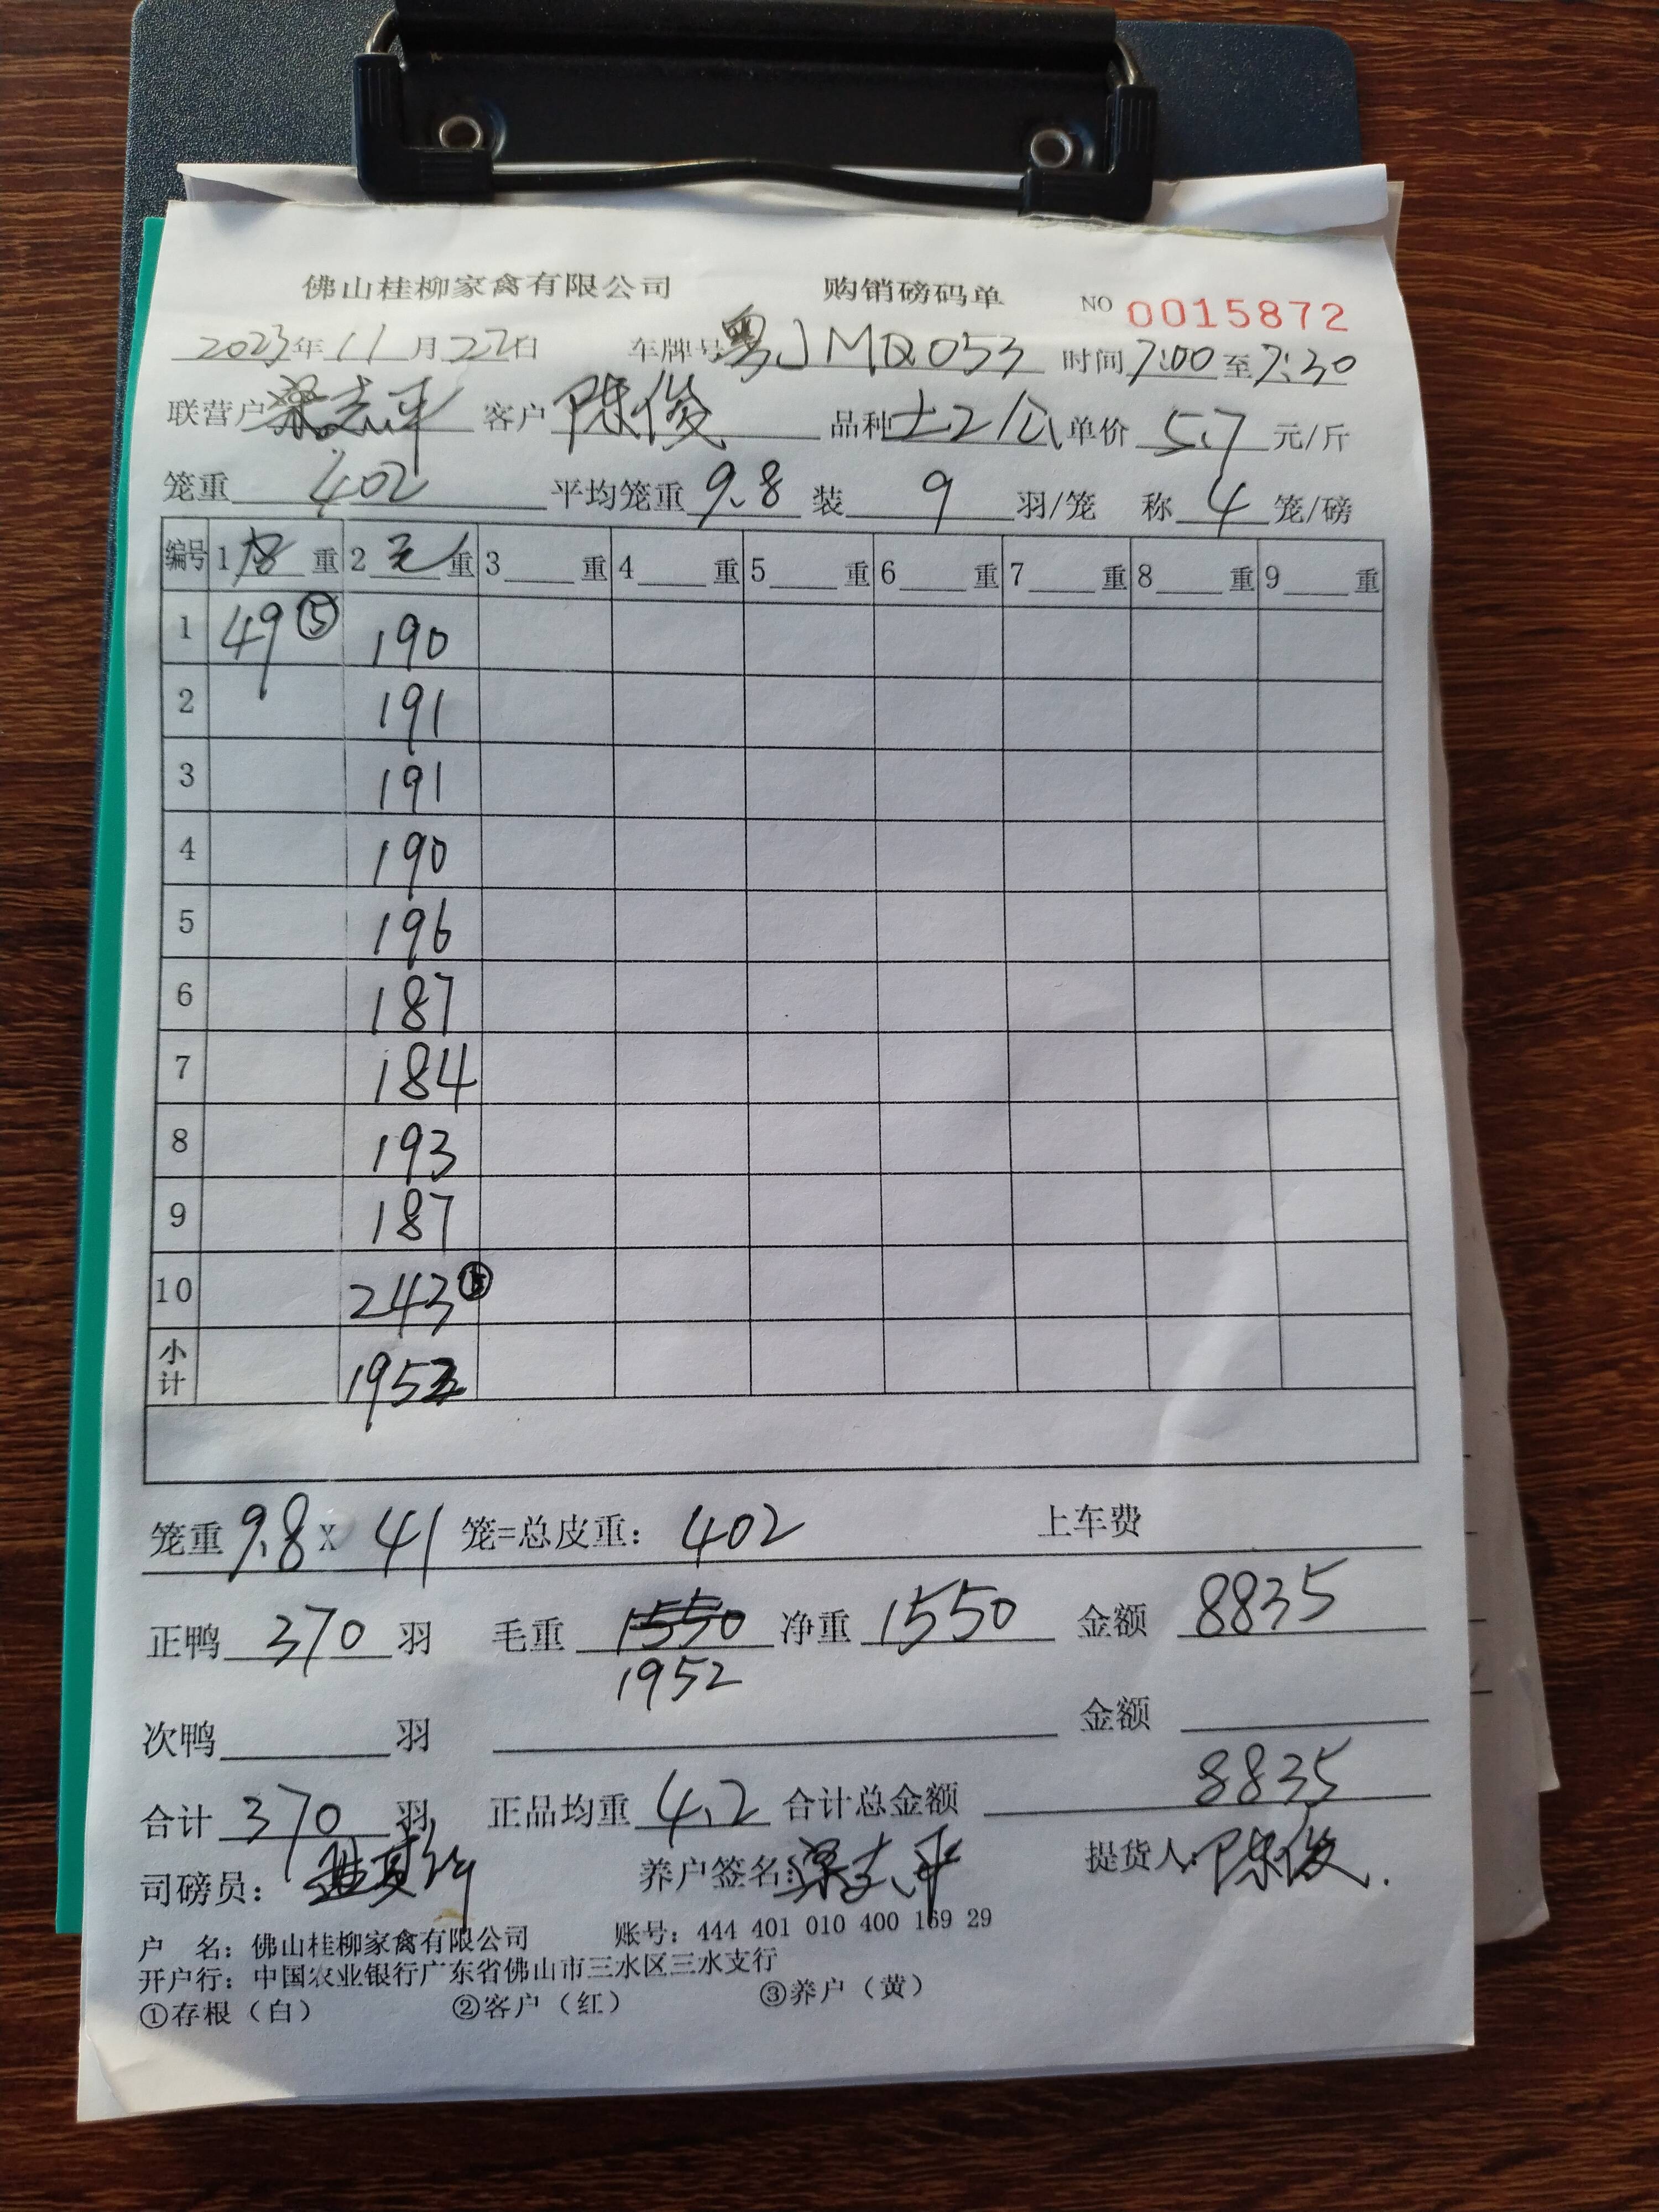 佛山桂柳家禽有限公司 购销磅码单 NO 0015872
2023年11月22日 车牌号粤JMQ053 时间7:00至7:30
联营户梁志平 客户陈俊 品种土2公 单价5.7元/斤
笼重402 平均笼重9.8 装9羽/笼 称4笼/磅
编号 1 重 2 毛重 3 重 4 重 5 重 6 重 7 重 8 重 9 重
1 49⑤ 190
2 191
3 191
4 190
5 196
6 187
7 184
8 193
9 187
10 243
小计 1952
笼重9.8 X 41笼=总皮重：402 上车费
正鸭370羽 毛重1550 净重1550 金额8835
1952
次鸭 羽 金额
合计370羽 正品均重4.2 合计总金额8835
司磅员： 养户签名：梁志平 提货人：陈俊.
户 名：佛山桂柳家禽有限公司 账号：444 401 010 400 169 29
开户行：中国农业银行广东省佛山市三水区三水支行
①存根（白） ②客户（红） ③养户（黄）